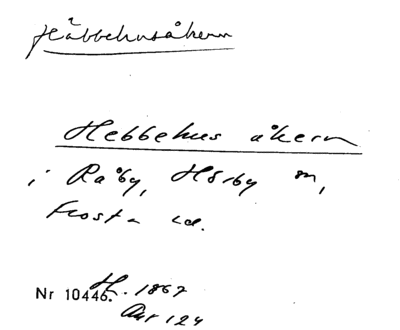 Häbbehusåkern
Hebbehus åkern
i Råby, Hörby sn,
Frosta hd.
Nr 10446. H. 1867
Avs 124